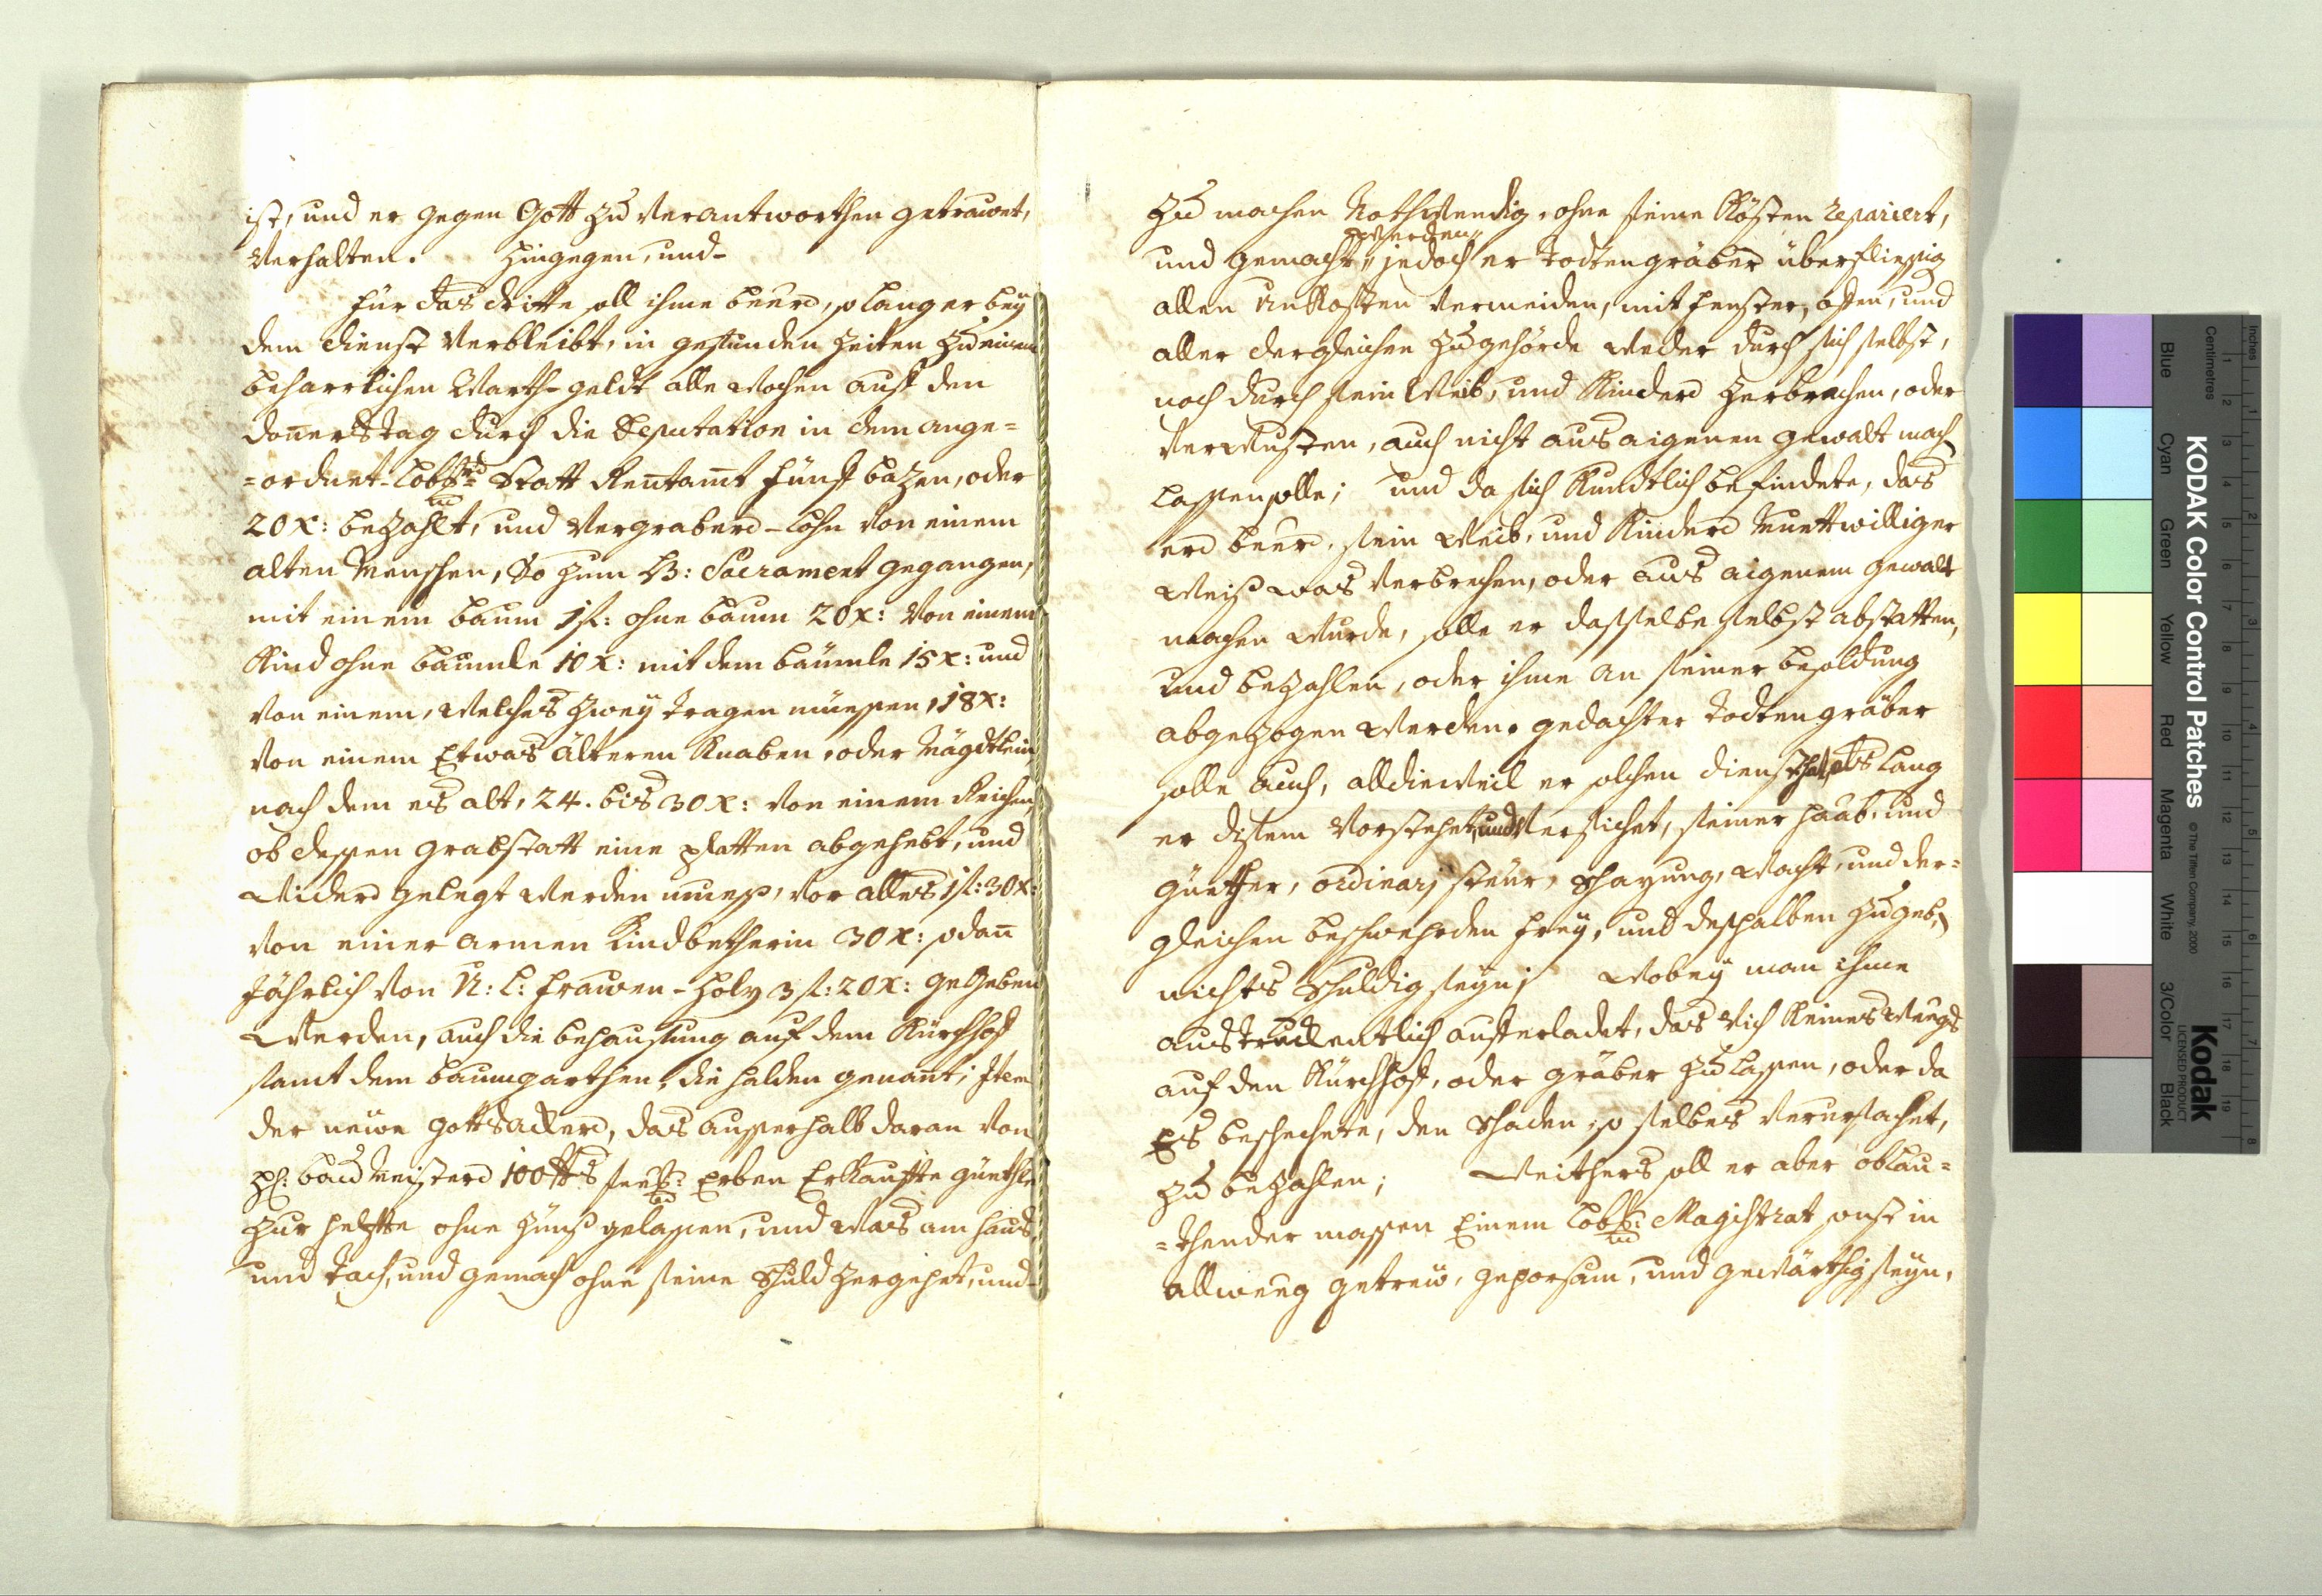 ist, und er gegen Gott zu verantworthen getrauwet,
Verhalten. Hingegen, und-
Für das dritte soll ihme beürd, so lang er beÿ
dem dienst Verbleibt, in gesunden Zeiten zu einem
beharrlichen Warth-geldt alle Wochen auff den
donnerstag durch die Deputation in dem ange=
=ordnet-Lobl: Statt Rentamt fünff bazen, oder
20 x: bezahlt, und Vergraber-Lohn von einem
alten Menschen, So zum H: Sacrament gegangen,
mit einem baum 1 fl: ohne baum 20 x: Von einem
Kind ohne bäumle 10 x: mit dem bäumle 15 x: und
von einem, welches zweÿ tragen müessen, 18 x:
Von einem Etwas älteren Knaben, oder Mägdtlein
nach dem es alt, 24. bis 30 x: von einem Reichen,
ob dessen grabstatt eine platten abgehebt, und
wider gelegt werden muess, vor alles 1 fl: 30 x:
von einer armen Kindbetherin 30 x: sodann
Jährlich von U: L: Frauen-Holz 3 fl: 20 x: gegeben
werden, auch die behausung auf dem Kürchhoff
samt dem baumgarthen, die halden genant; Item
der neüwe gottsacker, das ausserhalb daran von
H: bau Meister Erben Erkauffte güethle
zur helfte ohne Zünß gelassen, und was am Haus,
und tach, und gemach ohne seine Schuld zergehet, und-
zu machen Nothwendig, ohne seine Kösten repariert,
werden
und gemacht, jedoch er todtengräber überflissig
allen Unkosten vermeiden, mit fenster, ofen, und
aller dergleichen zugehörde weder durch sich selbst,
noch durch sein Weib, und Kinder zerbrechen, oder
verwusten, auch nicht aus aigenen gewalt mach
lassen solle; und da sich Kundtlich befindete, das
er beür, sein Weib, und Kinder Muettwilliger
weiß was verbrechen, oder aus aigenem gewalt
machen wurde, solle er dasselbe selbst abstatten,
und bezahlen, oder ihme an seiner besoldung
abgezogen werden. gedachter todtengräber
solle auch, alldieweil er solchen dienst hat, als lang
er disem Vorstehet, und versichet, seiner haab, und
güether, ordinarj steür, Schazung, Wacht, und der=
gleichen beschwehrden freÿ, und deshalben zu geb
nichts schuldig seÿn; Wobeÿ man ihme
austruckentlich aufferladet, das Vich Keinesweegs
auf den Kürchhoff, oder gräber zu lassen, oder da
Es beschechete, den Schaden, so selbes verursachet,
zu bezahlen; Weithers soll er aber oblau=
=thender massen Einem Lobl: Magistrat sonst in
allweeg getreüw, gehorsam, und gewärthig seÿn,
Inches
Centimetres
Blue
Cyan
Green
Yellow
Red
Magenta
White
3/Color
Black
KODAK Color Control Patches
© The Tiffen Company, 2000
Kodak
LICENSED PRODUCT